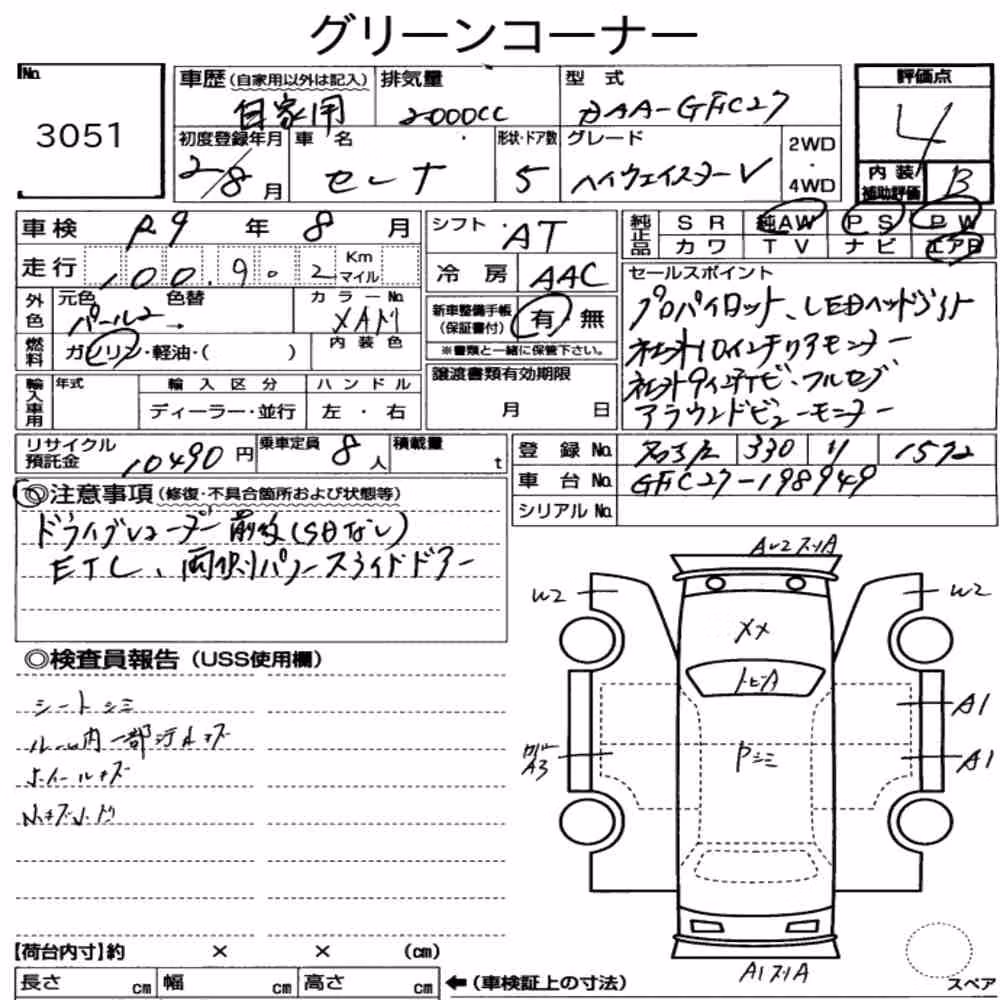 グリーンコーナー
No. 3051
車歴 (自家用以外は記入) 自家用
排気量 2000CC
型式 DAA-GFC27
評価点 4
初度登録年月 2/8月
車名 セレナ
形状・ドア数 5
グレード ハイウェイスターV
2WD・4WD
内装補助評価 B
車検 R9年 8月
シフト AT
純正品 SR 純AW PS PW
カワ TV ナビ エアB
走行 100,9.2 Km マイル
冷房 AAC
セールスポイント
プロパイロット、LEDヘッドライト
社外10インチリアモニター
アラウンドビューモニター
外色 元色 色替 カラーNo.
パール2 →
内装色
新車整備手帳 (保証書付) 有 無
※書類と一緒に保管下さい。
燃料 ガソリン・軽油・( )
輸入車用 年式 輸入区分 ハンドル
ディーラー・並行 左・右
譲渡書類有効期限
月 日
リサイクル預託金 10490円
乗車定員 8人
積載量 t
登録No. 330 1572
車台No. GFC27-198949
シリアルNo.
◎注意事項 (修復・不具合箇所および状態等)
ドライブレコーダー前後(SDなし)
ETC、両側パワースライドドアー
◎検査員報告 (USS使用欄)
シートシミ
ルーム内一部汚れキズ
ホイールキズ
W2 W2
XX
トビA
A1
A3 Pシミ A1
【荷台内寸】約 × × (cm)
長さ cm 幅 cm 高さ cm
←(車検証上の寸法)
スペア